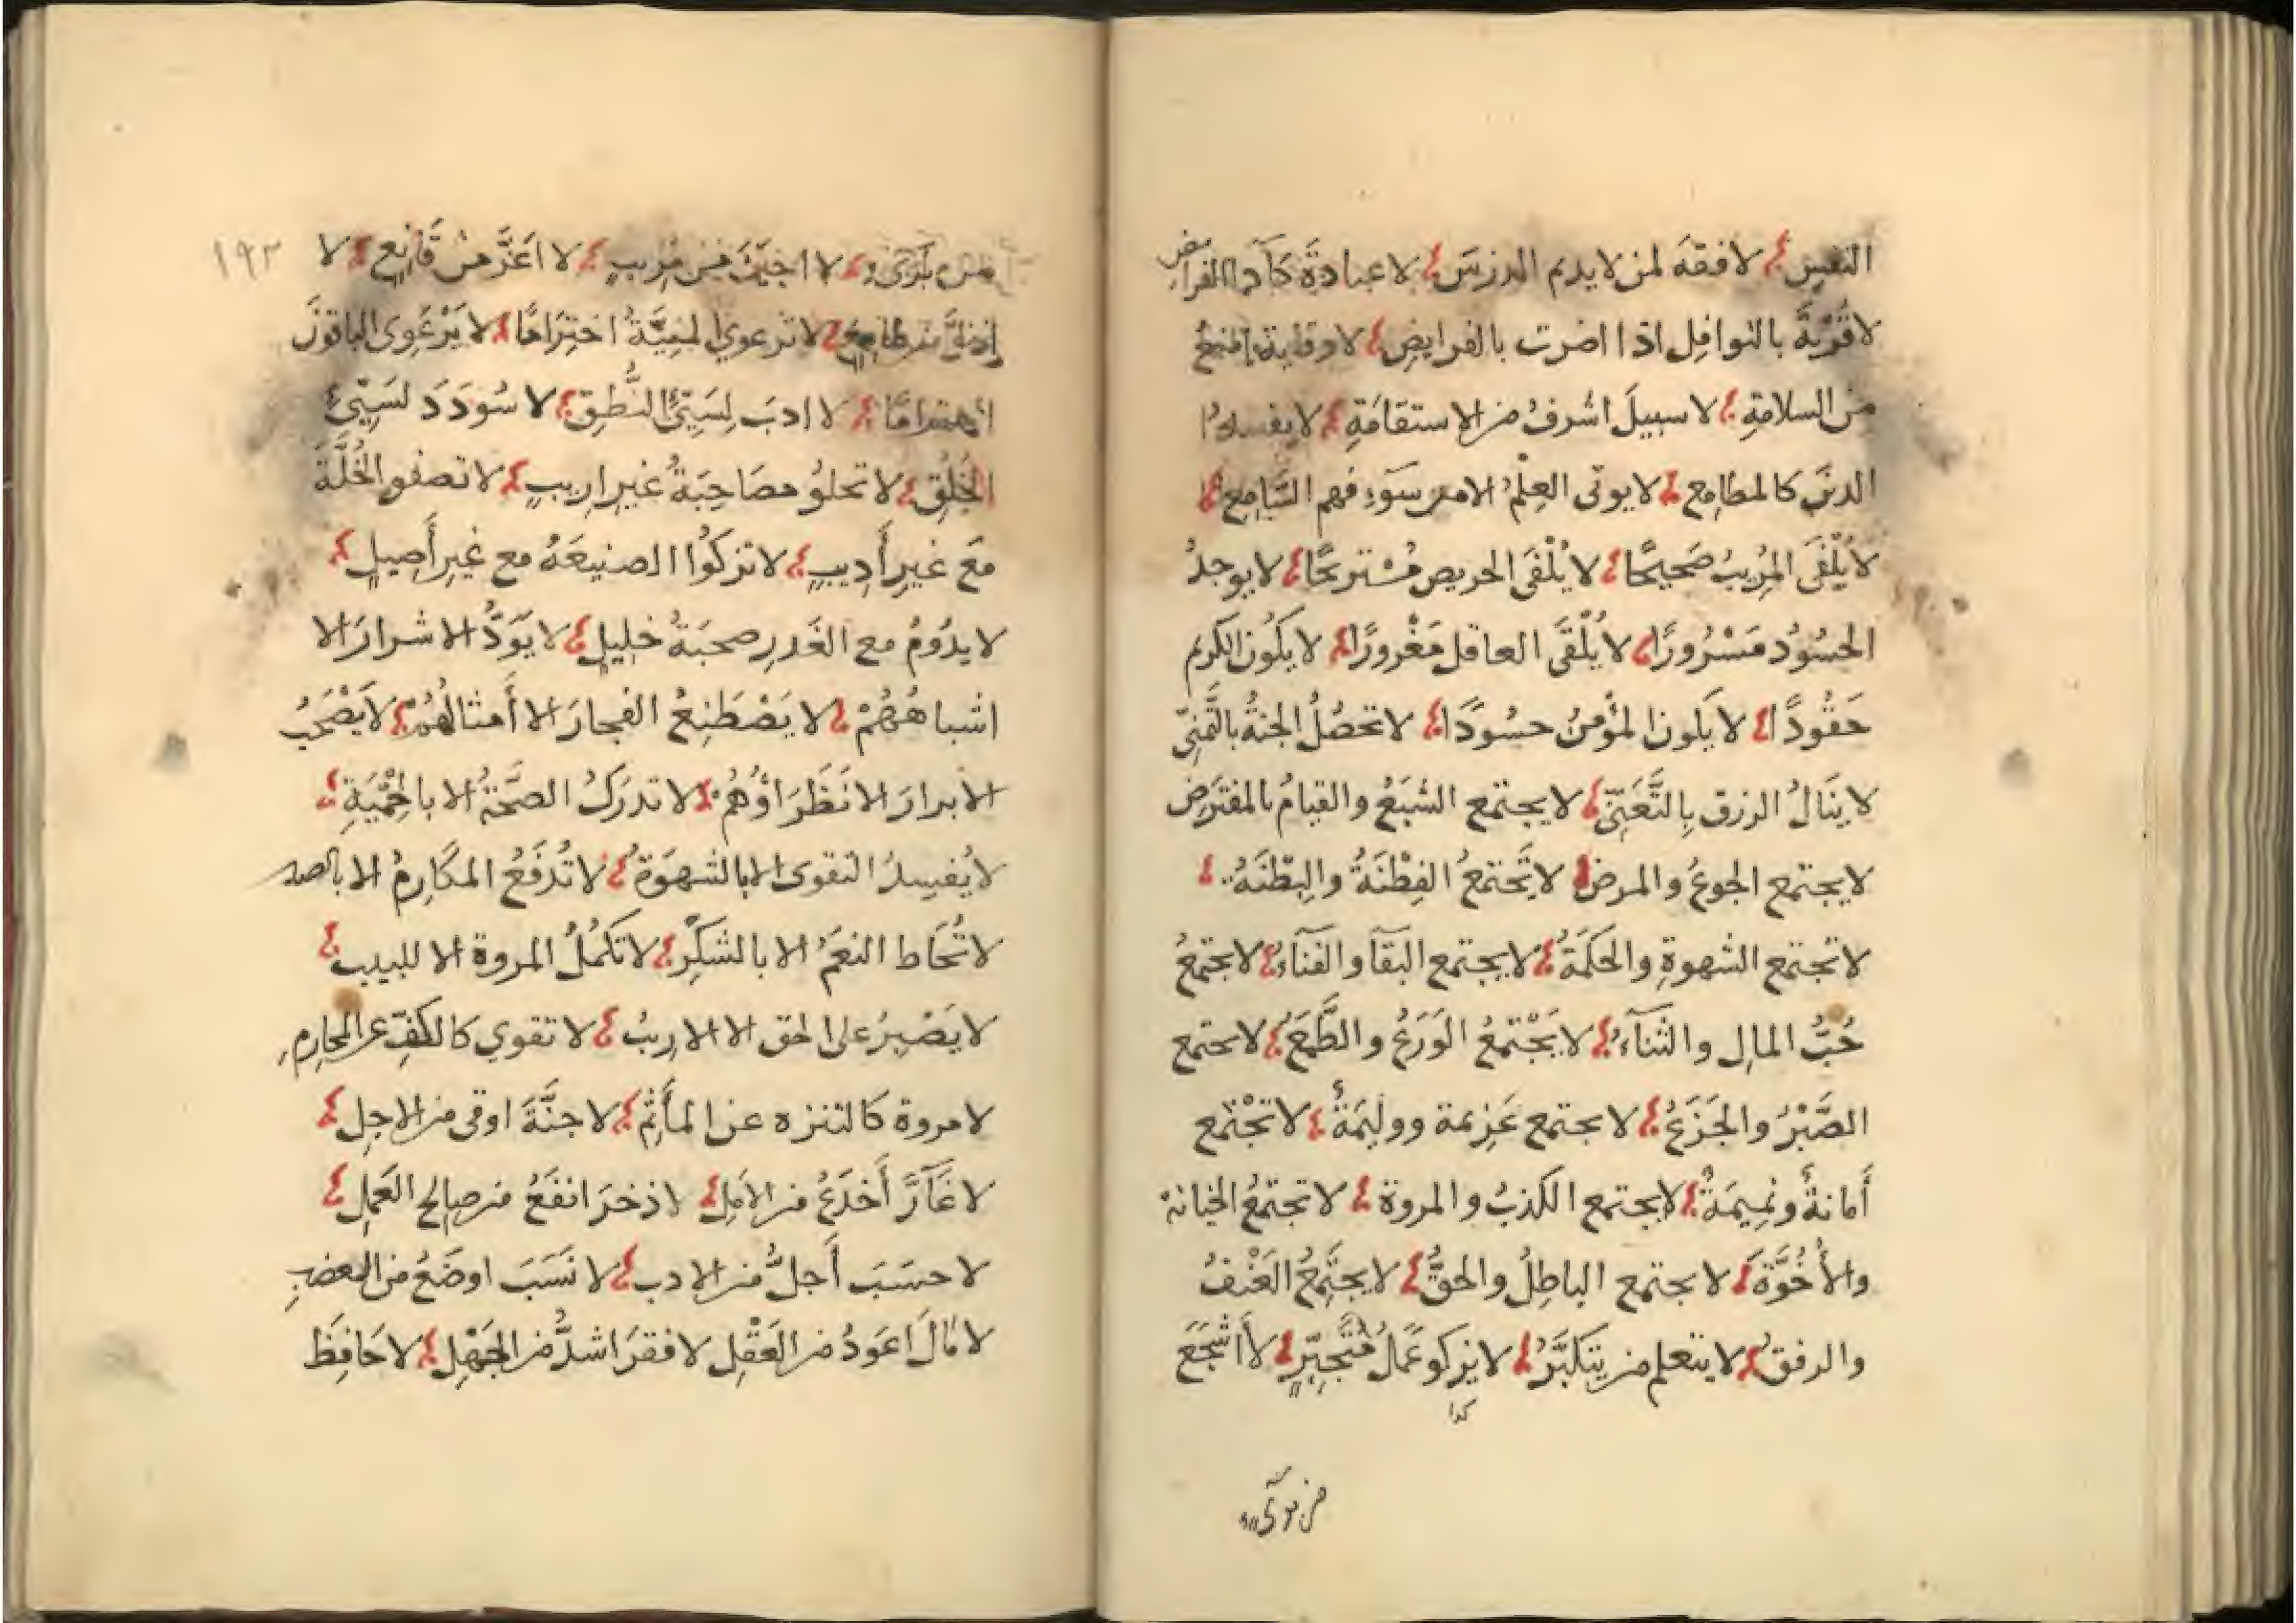 النفس لا فقه لمن لا يديم الدرس لا عبادة كآدا الفرايض
لا قُرْبَةَ بالنوافِل اذا اضرت بالفرايضِ لا وقاية امنع
من السلامةِ لا سبيلَ اشرفُ من الاستقامَةِ لا يفسد
الدينَ كالمطامِع لا يوتى العِلْمُ الا من سَوءِ فهم السَّامِع
لا يُلْفَى المُرِيبُ صَحِيحًا لا يُلْفَى الحريص مُسْتريحًا لا يوجدُ
الحسُوُد مَسْرُورًا لا يُلْقَى العاقل مَغْرورًا لا يكُون الكريم
حَقُودًا لا يَكون المؤمنُ حسُودًا لا تحصُلُ الجنةُ بالتَّمَنِّي
لا يَنَالُ الرزق بِالتَّعَنِّي لا يجتمع الشبَعُ والقيامُ بالمفترَض
لا يجتمع الجوعُ والمرض لا تَجتمعُ الفِطْنَةُ والبِطْنَةُ
لا تجتمع الشهوةِ والحكمَةُ لا يجتمع البَقآ والفَنآءُ لا يجتمعُ
حُبُّ المالِ والثنآءُ لا يَجْتَمعُ الوَرَعُ والطَّمَعُ لا يجتمع
الصَّبْرُ والجَزَعُ لا يجتمع عَزِيمة وولِيمَةٌ لا تجْتَمع
أَمانةٌ ونمِيمَةٌ لا يجتمع الكذبُ والمروة لا تجتمعُ الخيانة
والأُخُوَّة لا يجتمع الباطِلُ والحقُّ لا يجتمعُ العَنْفُ
والرفق لا يتعلم من يتَكَبَّرُ لا يزكو عَمَلُ مُتَجبِّرٍ لا اشْجَعَ
كذا
من برئ
١٩٣
من برئ لا اجبَنَ من مُرِيبٍ لا اعَزَّ مِنْ قَانِع لا
اذلَّ من طامع لا ترعوي المنِيَّةُ اختِرَامًا لا يَرْعَوِى الباقونَ
اجترامًا لا ادبَ لِسَيّئُ النُّطقِ لا سُودَدَ لسَيِّئ
الخُلُقِ لا تحلوُ مصَاحِبَةُ غيرِ ارِيبٍ لا تصفو الخُلَّةُ
مَعَ غيرِ أَدِيبٍ لا تزكُوا الصنيعَهُ مع غيرِ أَصِيلٍ
لا يدُومُ مع الغَدرِ صحبَةُ خليلٍ لا يَوَدُّ الاشرارَ الا
اشباهُهُمْ لا يَصْطَنِعُ الفجارَ الا أَمثالُهُمْ لا يَصْحَبُ
الأبرارَ الا نَظَرَاؤُهُمْ لا تدرَكُ الصَّحَّةُ الا بالحِمْيَةِ
لا يُفسِدُ التقوى الا بالشهوَة لا تُدْفَعُ المكارِهُ الا بالصبر
لا تُحَاط النعَمُ الا بالشكْرِ لا تكمُلُ المروة الا للبيبٍ
لا يَصْبِرُ على الحق الا الارِيبُ لا تقوي كالكفِّ عن المحارِمِ
لا مروة كالتنزه عن المأثِمْ لا جنَّةَ اوقى من الاجلِ
لا غَارَّ أَخدَعُ من الأمَلِ لا ذخرَ انفَعُ من صالح العَملِ
لا حسَبَ أَجلُّ من الادب لا نَسَبَ اوضَعُ من الغضبِ
لا مَالَ اعوَدُ من العَقْلِ لا فقرَ اشدُّ من الجَهْلِ لا حَافِظَ